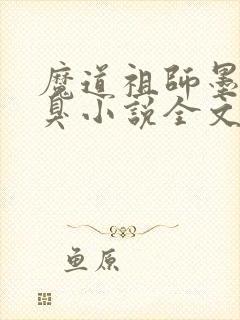 魔道祖師墨
臭小説全文
鱼原